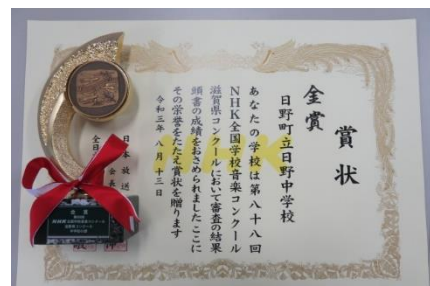 賞状
金賞
日野町立日野中学校
あなたの学校は第八十八回
NHK全国学校音楽コンクール
滋賀県コンクールにおいて審査の結果
頭書の成績をおさめられましたここに
その栄誉をたたえ賞状を贈ります
令和三年八月十三日
日本放送
全日
NHK
金賞